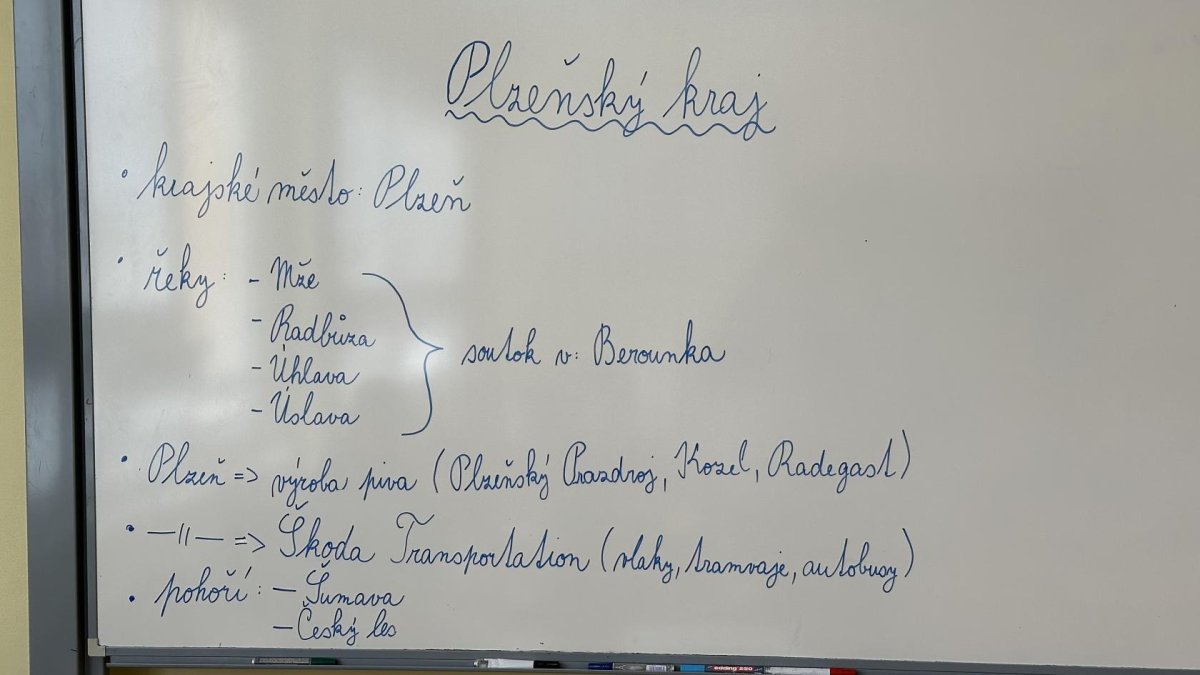 Plzeňský kraj
• krajské město: Plzeň
• řeky: - Mže
- Radbůza
- Úhlava
- Úslava
soutok v: Berounka
• Plzeň => výroba piva (Plzeňský Prazdroj, Kozel, Radegast)
• —||— => Škoda Transportation (vlaky, tramvaje, autobusy)
• pohoří: - Šumava
- Český les
edding 250